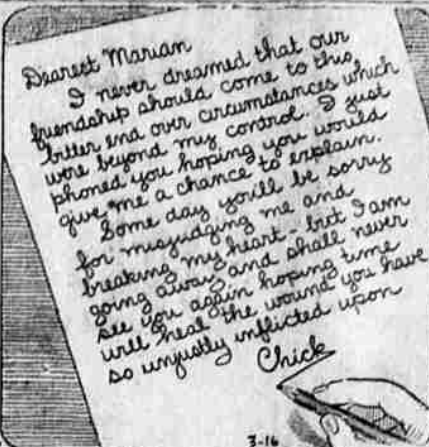 Dearest Marian
I never dreamed that our
friendship should come to this
bitter end over circumstances which
were beyond my control. I just
phoned you hoping you would
give me a chance to explain.
Some day you'll be sorry
for misjudging me and
breaking my heart - but I am
going away and shall never
see you again hoping time
will heal the wound you have
so unjustly inflicted upon
Chick
3-16